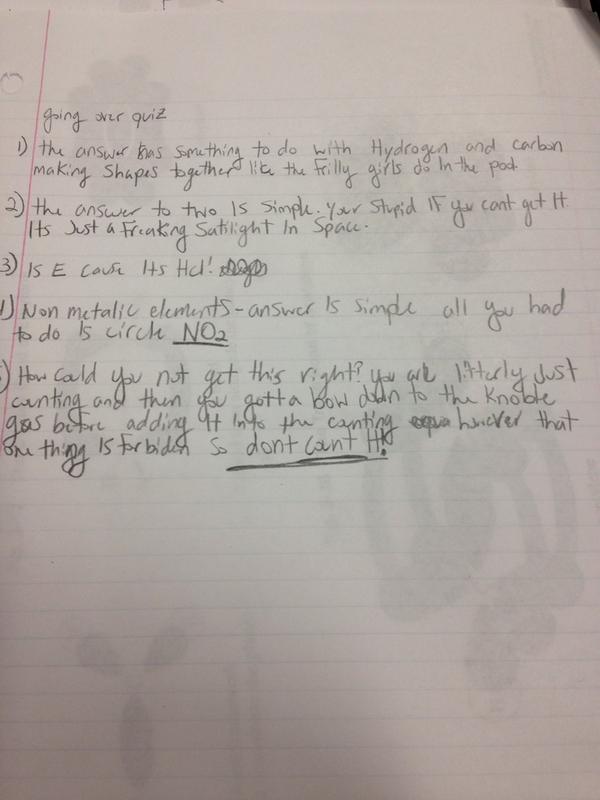 going over quiz
1) the answer has something to do with Hydrogen and carbon
making shapes together like the Frilly girls do In the pool.
2) the answer to two Is simple. Your stupid IF you cant get It.
Its Just a Freaking Satilight In Space.
3) Is E cause Its Hcl!
) Non metalic elements - answer Is simple all you had
to do Is circle NO2
) How could you not get this right? you are litterly Just
counting and then you gotta bow down to the Knoble
gas before adding It Into the counting however that
one thing Is forbiden so dont count It!